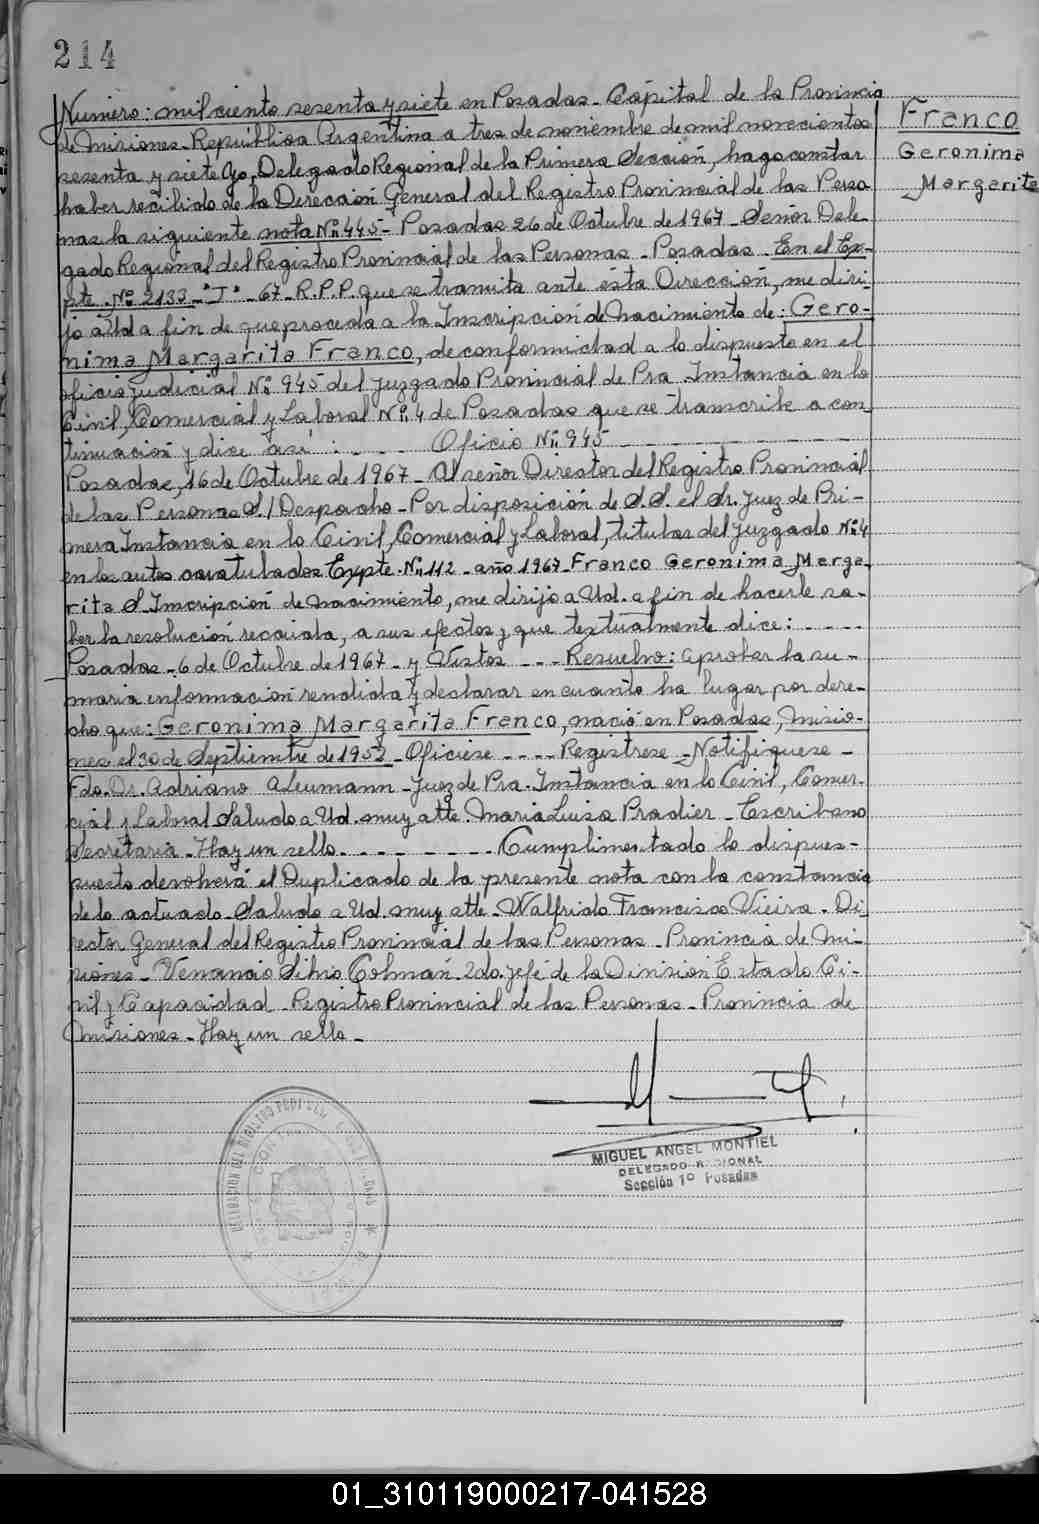 214
Número: mil ciento sesenta y siete en Posadas - Capital de la Provincia
de Misiones - República Argentina a tres de noviembre de mil novecientos
sesenta y siete Yo, Delegado Regional de la Primera Sección, hago constar
haber recibido de la Dirección General del Registro Provincial de las Perso
nas la siguiente nota Nº 445 - Posadas 26 de Octubre de 1967 - Señor Dele-
gado Regional del Registro Provincial de las Personas - Posadas - En el Ex-
pte. Nº 2133 - "I" - 67 - R.P.P. que se tramita ante ésta Dirección, me diri-
jo a Ud a fin de que proceda a la Inscripción de nacimiento de: Gero-
nima Margarita Franco, de conformidad a lo dispuesto en el
oficio judicial Nº 945 del Juzgado Provincial de Pra. Instancia en lo
Civil, Comercial y Laboral Nº 4 de Posadas que se transcribe a con
tinuación y dice así: - - - - Oficio Nº 945 - - - - - - - -
Posadas, 16 de Octubre de 1967 - Al señor Director del Registro Provincial
de las Personas S./Despacho - Por disposición de S.S. el Sr. Juez de Pri-
mera Instancia en lo Civil, Comercial y Laboral, titular del Juzgado Nº 4
en los autos caratulados Expte. Nº 112 - año 1967 - Franco Geronima Marga-
rita S Inscripción de nacimiento, me dirijo a Ud. a fin de hacerle sa-
ber la resolución recaída, a sus efectos y que textualmente dice: - - - -
Posadas - 6 de Octubre de 1967 - y Vistos - - - Resuelvo: aprobar la su-
maria información rendida y declarar en cuanto ha lugar por dere-
cho que: Geronima Margarita Franco, nació en Posadas, Misio-
nes el 30 de Septiembre de 1953 - Oficiese - - - - Registrese - Notifiquese -
Fdo. Dr. Adriano A Leumann - Juez de Pra. Instancia en lo Civil, Comer-
cial y Laboral Saludo a Ud. muy atte. María Luisa Pradier - Escribano
Secretaria - Hay un sello. - - - - - - - - Cumplimentado lo dispues-
puesto devolverá el Duplicado de la presente nota con la constancia
de lo actuado - Saludo a Ud. muy atte - Walfrido Francisco Vieira - Di
rector General del Registro Provincial de las Personas - Provincia de Mi-
siones - Venancio Silvio Colman - 2do. Jefe de la División Estado Ci-
vil y Capacidad - Registro Provincial de las Personas - Provincia de
Misiones - Hay un sello -
Franco
Geronima
Margarita
MIGUEL ANGEL MONTIEL
DELEGADO REGIONAL
Sección 1º Posadas
01_310119000217-041528